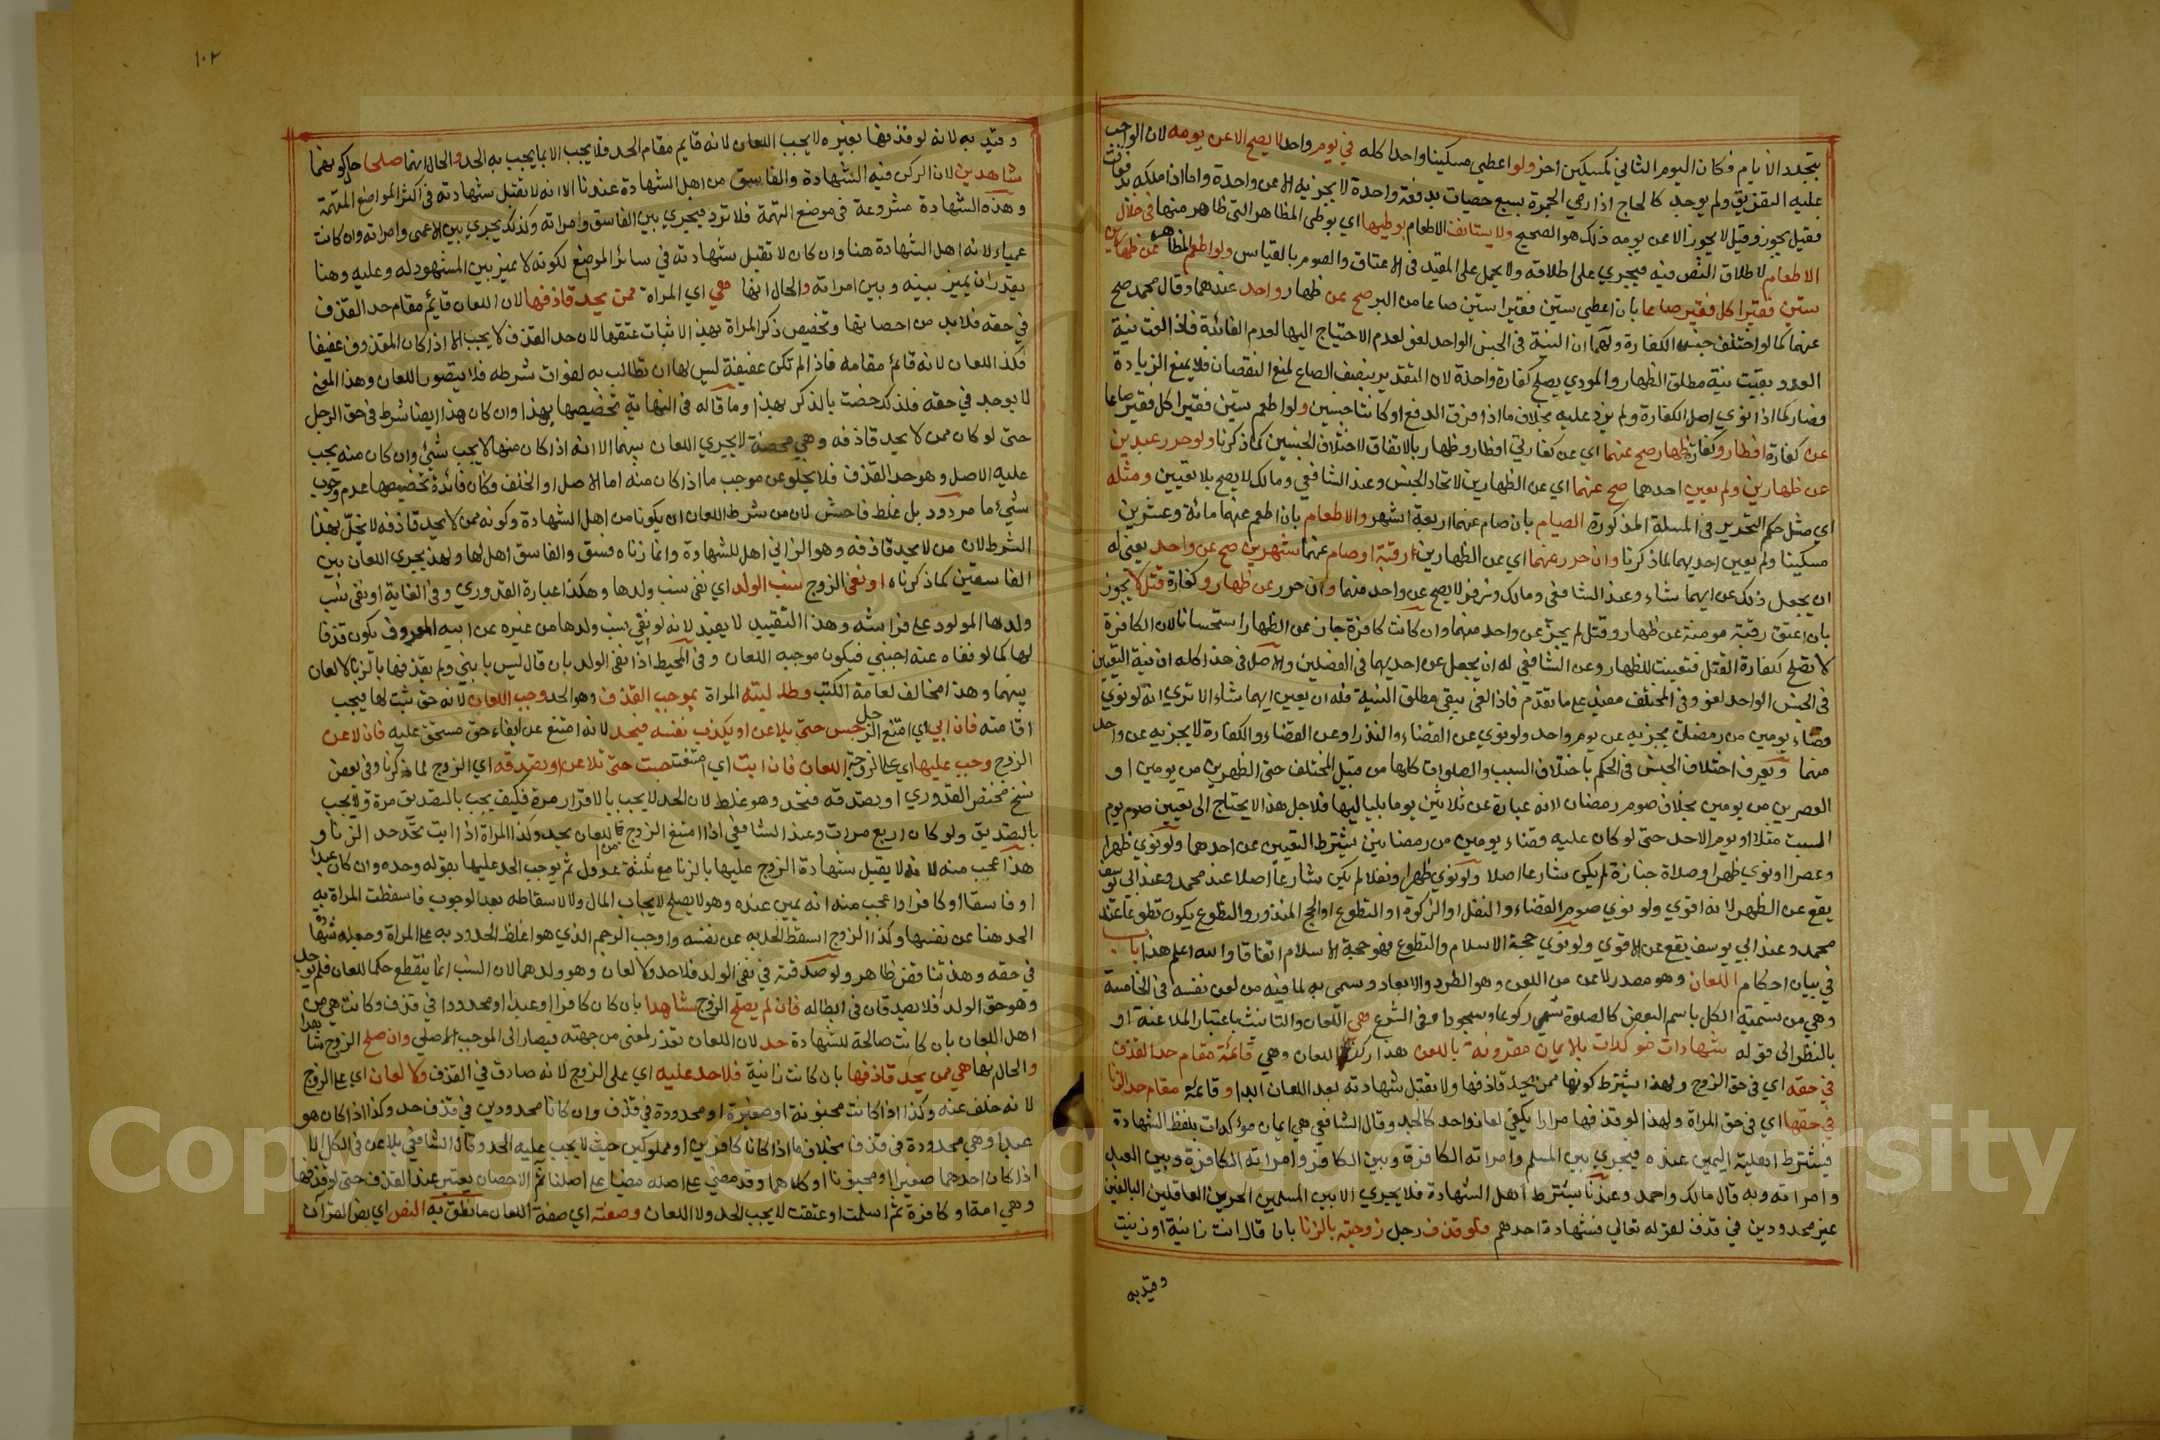 بتجدد الايام فكان اليوم الثاني كمسكين اخر ولو اعطي مسكينا واحدا كله في يوم واحد لا يصح الا عن يومه لان الواجب
عليه التفريق ولم يوجد كالحاج اذا رمي الجمرة بسبع حصيات بدفعة واحدة لا يجزيه الا عن واحدة واما اذا ملكه بدفعات
فقيل يجوز وقيل لا يجوز الا عن يومه ذلك هو الصحيح ولا يستانف الاطعام بوطيها اي بوطي المظاهر التي ظاهر منها في خلال
الاطعام لاطلاق النص فيه فيجري علي اطلاقه ولا يحمل علي المقيد في الاعتاق والصوم بالقياس ولو اطعم المظاهر عن ظهارين
ستين فقيرا كل فقير صاعا بان اعطي ستين فقيرا ستين صاعا من البر صح عن ظهار واحد عندهما وقال محمد صح
عنهما كما لو اختلف جنس الكفارة ولهما ان النية في الجنس الواحد لغو لعدم الاحتياج اليها لعدم الفائدة فاذا لغت نية
العدد بقيت نية مطلق الظهار والمودي يصلح كفارة واحدة لان التقدير بنصف الصاع لمنع النقصان فلا يمنع الزيادة
فصار كما اذا نوي اصل الكفارة ولم يزد عليه بخلاف ما اذا فرق الدفع او كانتا جنسين ولو اطعم ستين فقيرا كل فقير صاعا
عن كفارة افطار وكفارة ظهار صح عنهما اي عن كفارتي افطار وظهار بالاتفاق لاختلاف الجنسين كما ذكرنا ولو حرر عبدين
عن ظهارين ولم يعين احدهما صح عنهما اي عن الظهارين لاتحاد الجنس وعند الشافعي ومالك لا يصح بلا تعيين ومثله
اي مثل حكم التحرير في المسئلة المذكورة الصيام بان صام عنهما اربعة اشهر والاطعام بان اطعم عنهما مائة وعشرين
مسكينا ولم يعين احديهما لما ذكرنا وان حرر عنهما اي عن الظهارين رقبة او صام عنهما شهرين صح عن واحد يعني له
ان يجعل ذلك عن ايهما شاء وعند الشافعي ومالك وزفر لا يصح عن واحد منهما وان حرر عن ظهار وكفارة قتل لا يجوز
بان اعتق رقبة مومنة عن ظهار وقتل لم يجز عن واحد منهما وان كانت كافرة جاز عن الظهار استحسانا لان الكافرة
لا تصلح لكفارة القتل فتعينت للظهار وعن الشافعي له ان يجعل عن احديهما في الفصلين والاصل في هذا كله ان نية التعيين
في الجنس الواحد لغو وفي المختلف مفيد علي ما تقدم فاذا لغي يبقي مطلق النية فله ان يعين ايهما شاء الا تري انه لو نوي
قضاء يومين من رمضان يجزيه عن يوم واحد ولو نوي عن القضاء والنذر او عن القضاء والكفارة لا يجزيه عن واحد
منهما ويعرف اختلاف الجنس في الحكم باختلاف السبب والصلوات كلها من قبيل المختلف حتي الظهرين من يومين او
العصرين من يومين بخلاف صوم رمضان لانه عبارة عن ثلاثين يوما بلياليها فلاجل هذا لا يحتاج الي تعيين صوم يوم
السبت مثلا او يوم الاحد حتي لو كان عليه قضاء يومين من رمضانين يشترط التعيين عن احدهما ولو نوي ظهرا
وعصرا او نوي ظهرا وصلاة جنازة لم يكن شارعا اصلا ولو نوي ظهرا ونفلا لم يكن شارعا اصلا عند محمد وعند ابي يوسف
يقع عن الظهر لانه اقوي ولو نوي صوم القضاء والنفل او الزكوة او التطوع او الحج المنذور والتطوع يكون تطوعا عند
محمد وعند ابي يوسف يقع عن الاقوي ولو نوي حجة الاسلام والتطوع فهو حجة الاسلام اتفاقا والله اعلم هذا باب
في بيان احكام اللعان وهو مصدر لاعن من اللعن وهو الطرد والابعاد وسمي به لما فيه من لعن نفسه في الخامسة
وهي من تسمية الكل باسم البعض كالصلوة تسمي ركوعا وسجودا وفي الشرع هي اللعان والتانيث باعتبار الملاعنة او
بالنظر الي قوله شهادات موكدات بالايمان مقرونة باللعن هذا ركن اللعان وهي قائمة مقام حد القذف
في حقه اي في حق الزوج ولهذا يشترط كونها ممن يحد قاذفها ولا تقبل شهادته بعد اللعان ابدا وقائمة مقام حد الزنا
في حقها اي في حق المراة ولهذا لو قذفها مرارا يكفي لعان واحد كالحد وقال الشافعي هي ايمان موكدات بلفظ الشهادة
فيشترط اهلية اليمين عنده فيجري بين المسلم وامراته الكافرة وبين الكافر وامراته الكافرة وبين العبد
وامراته وبه قال مالك واحمد وعندنا يشترط اهل الشهادة فلا يجري الا بين المسلمين الحرين العاقلين البالغين
غير محدودين في قذف لقوله تعالي فشهادة احدهم فلو قذف رجل زوجته بالزنا بان قال انت زانية او زنيت
وقيد به
١٠٢
وقيد به لانه لو قذفها بغيره لا يجب اللعان لانه قايم مقام الحد فلا يجب الا بما يجب به الحد والحال انهما صلحا حال كونهما
شاهدين لان الركن فيه الشهادة والفاسق من اهل الشهادة عندنا الا انه لا تقبل شهادته في اكثر المواضع للتهمة
وهذه الشهادة مشروعة في موضع التهمة فلا ترد فيجري بين الفاسق وامراته وكذلك يجري بين الاعمي وامراته وان كانت
عمياء لانه اهل الشهادة هنا وان كان لا تقبل شهادته في سائر المواضع لكونه لا يميز بين المشهود له وعليه وهنا
يقدر ان يميز بينه وبين امراته والحال انها هي اي المراة ممن يحد قاذفها لان اللعان قائم مقام حد القذف
في حقه فلا بد من احصانها وتخصيص ذكر المراة بهذا لاثبات عفتها لان حد القذف لا يجب الا اذا كان المقذوف عفيفا
فكذا اللعان لانه قائم مقامه فاذا لم تكن عفيفة ليس لها ان تطالب به لفوات شرطه فلا يتصور اللعان وهذا المعني
لا يوجد في حقه فلذلك خصت بالذكر بهذا وما قاله في النهاية تخصيصها بهذا وان كان هذا ايضا شرط في حق الرجل
حتي لو كان ممن لا يحد قاذفه وهي محصنة لا يجري اللعان بينهما الا انه اذا كان منها لا يجب شيء وان كان منه يجب
عليه الاصل وهو حد القذف فلا يخلو عن موجب ما اذا كان منه اما الاصل او الخلف فكان فائدة تخصيصها عدم وجوب
شيء ما مردود بل غلط فاحش لان من شرط اللعان ان يكونا من اهل الشهادة وكونه ممن لا يحد قاذفه لا يخل بهذا
الشرط لان من لا يحد قاذفه وهو الزاني اهل للشهادة وانما زناه فسق والفاسق اهل لها ولهذا يجري اللعان بين
الفاسقين كما ذكرناه او نفي الزوج نسب الولد اي نفي نسب ولدها وهكذا عبارة القدوري وفي الغاية او نفي نسب
ولدها المولود علي فراشه وهذا التقييد لا يفيد لانه لو نفي نسب ولدها من غيره عن ابيه المعروف يكون قذفا
لها كما لو نفاه عنه اجنبي فيكون موجبه اللعان وفي المحيط اذا نفي الولد بان قال ليس بابني ولم يقذفها بالزنا لا لعان
بينهما وهذا مخالف لعامة الكتب وطالبته المراة بموجب القذف وهو الحد وجب اللعان لانه حق ثبت لها فيجب
اقامته فان ابي اي امتنع الرجل حبس حتي يلاعن او يكذب نفسه فيحد لانه امتنع عن ايفاء حق مستحق عليه فان لاعن
الزوج وجب عليها اي علي الزوجة اللعان فان ابت اي امتنعت حبست حتي تلاعن او تصدقه اي الزوج لما ذكرنا وفي بعض
نسخ مختصر القدوري او تصدقه فتحد وهو غلط لان الحد لا يجب بالاقرار مرة فكيف يجب بالتصديق مرة ولا يجب
بالتصديق ولو كان اربع مرات وعند الشافعي اذا امتنع الزوج من اللعان يحد وكذا المراة اذا ابت تحد حد الزنا و
هذا عجب منه لانه لا يقبل شهادة الزوج عليها بالزنا مع ثلثة عدول ثم يوجب الحد عليها بقوله وحده وان كان عبدا
او فاسقا او كافرا واعجب منه انه يمين عنده وهو لا يصلح لايجاب المال ولا لاسقاطه بعد الوجوب فاسقطت المراة به
الحد هنا عن نفسها وكذا الزوج اسقط الحد به عن نفسه واوجب الرجم الذي هو اغلظ الحدود به علي المراة وجعله شهادة
في حقه وهذا تناقض ظاهر ولو صدقته في نفي الولد فلا حد ولا لعان وهو ولدهما لان النسب انما ينقطع حكما للعان فلم يوجد
وهو حق الولد فلا يصدقان في ابطاله فان لم يصلح الزوج شاهدا بان كان كافرا او عبدا او محدودا في قذف وكانت هي من
اهل اللعان بان كانت صالحة للشهادة حد لان اللعان تعذر لمعني من جهته فيصار الي الموجب الاصلي وان صلح الزوج شاهدا
والحال انها هي ممن لا يحد قاذفها بان كانت زانية فلا حد عليه اي علي الزوج لانه صادق في القذف ولا لعان اي علي الزوج
لانه خلف عنه وكذا اذا كانت مجنونة او صغيرة او محدودة في قذف وان كانا محدودين في قذف حد وكذا اذا كان هو
عبدا وهي محدودة في قذف بخلاف ما اذا كانا كافرين او مملوكين حيث لا يجب عليه الحد وقال الشافعي يلاعن في الكل الا
اذا كان احدهما صغيرا او مجنونا او كلاهما وقد مضي علي اصله مضينا علي اصلنا ثم الاحصان يعتبر عند القذف حتي لو قذفها
وهي امة او كافرة ثم اسلمت او عتقت لا يجب الحد ولا اللعان وصفته اي صفة اللعان ما نطق به النص اي نص القرآن
Copyright © King Saud University